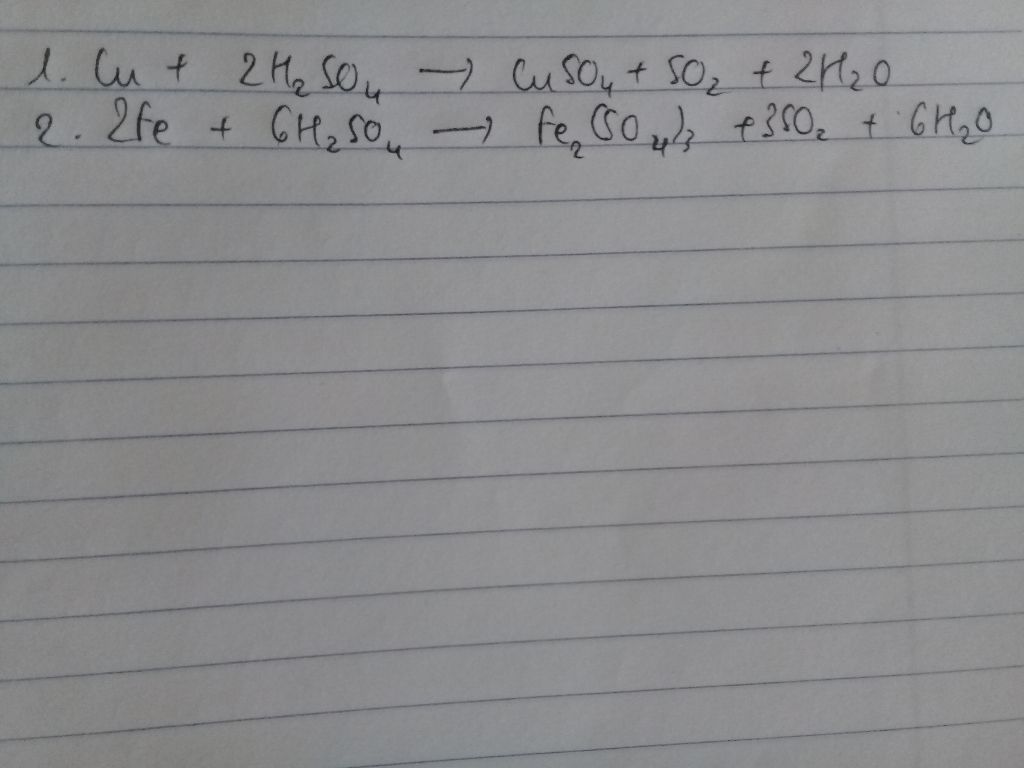 1. Cu + 2H₂SO₄ → CuSO₄ + SO₂ + 2H₂O
2. 2Fe + 6H₂SO₄ → Fe₂(SO₄)₃ + 3SO₂ + 6H₂O